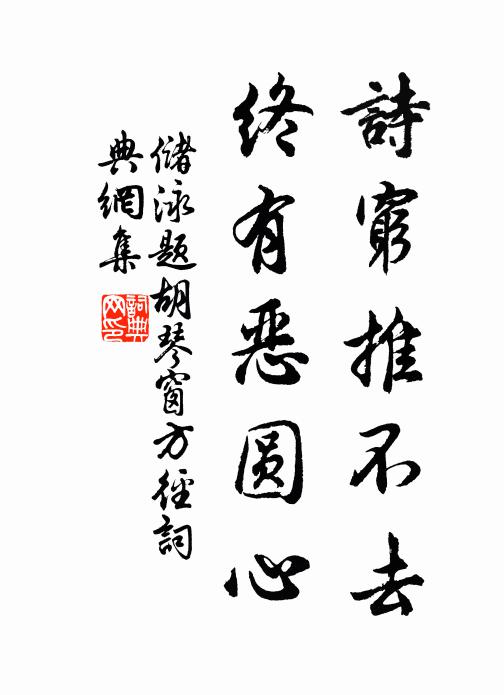 詩窮推不去
終有惡圓心
儲泳題胡琴窗方徑詞
典網集
詞典
网印